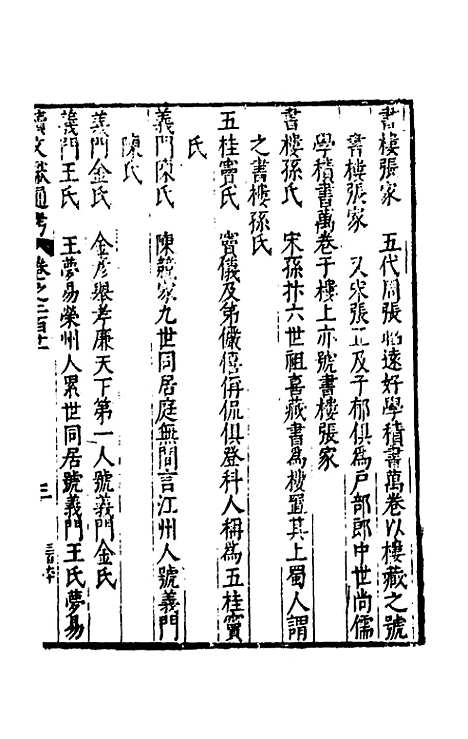 書樓張家　五代周張昭遠好學積書萬卷以樓藏之號
書樓張家　又宋張正及子郁俱爲戶部郎中世尚儒
學積書萬卷于樓上亦號書樓張家
書樓孫氏　宋孫抃六世祖喜藏書爲樓置其上蜀人謂
之書樓孫氏
五桂竇氏　竇儀及弟儼僖偁侃俱登科人稱爲五桂竇
氏
義門陳氏　陳兢家九世同居庭無間言江州人號義門
陳氏
義門金氏　金彥舉孝廉天下第一人號義門金氏
義門王氏　王夢易榮州人累世同居號義門王氏夢易
續文獻通考　卷之二百十　三